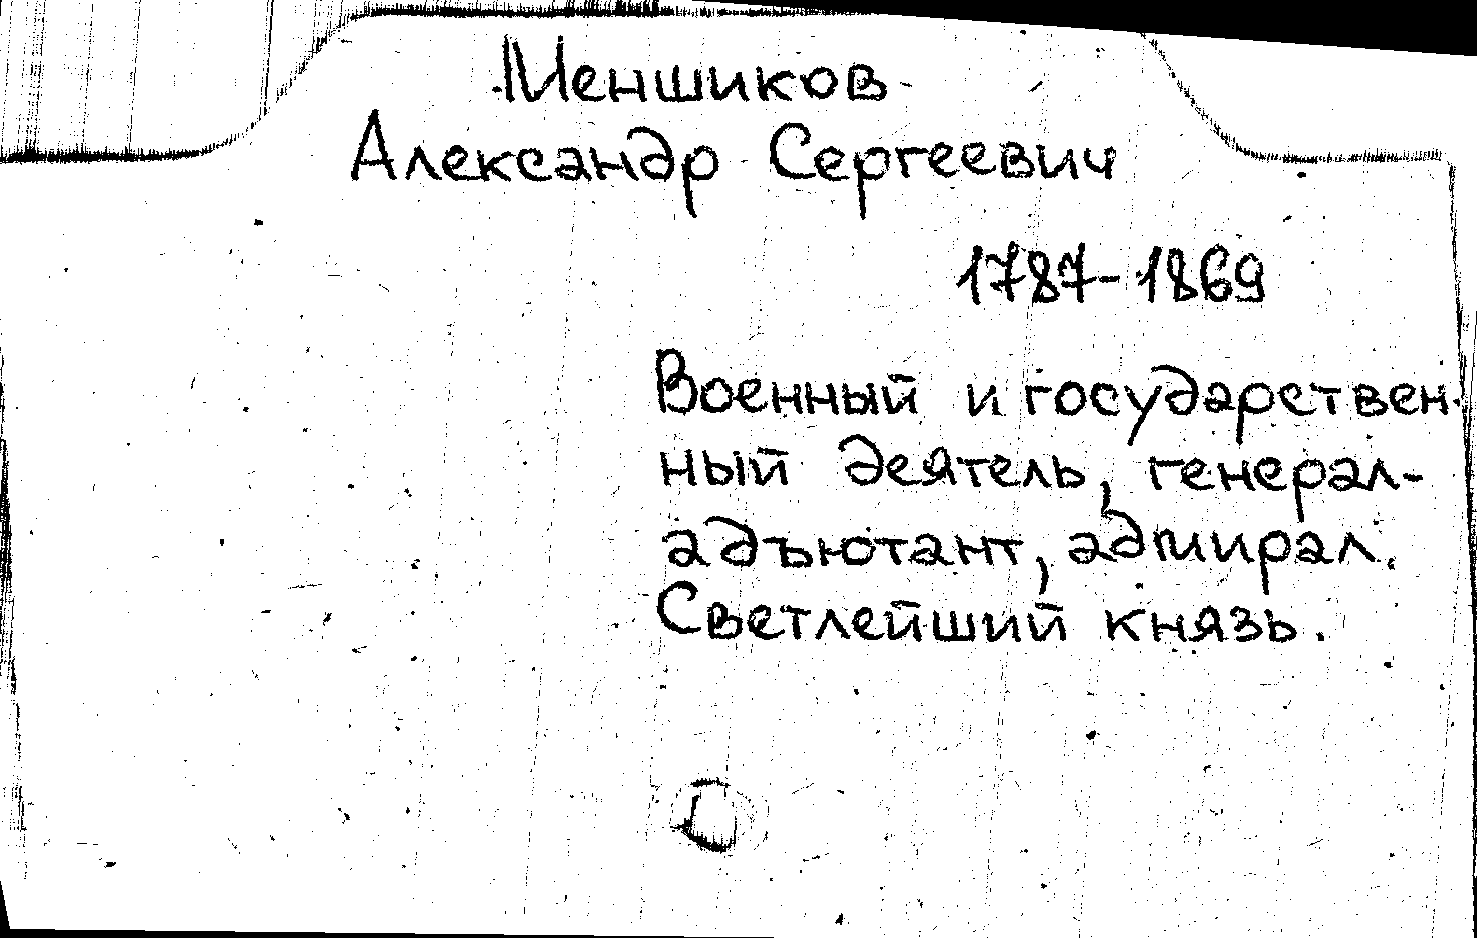 Меншиков
Александр Сергеевич
1787-1869
Военный и государствен-
ный деятель, генерал-
адъютант, адмирал.
Светлейший князь.